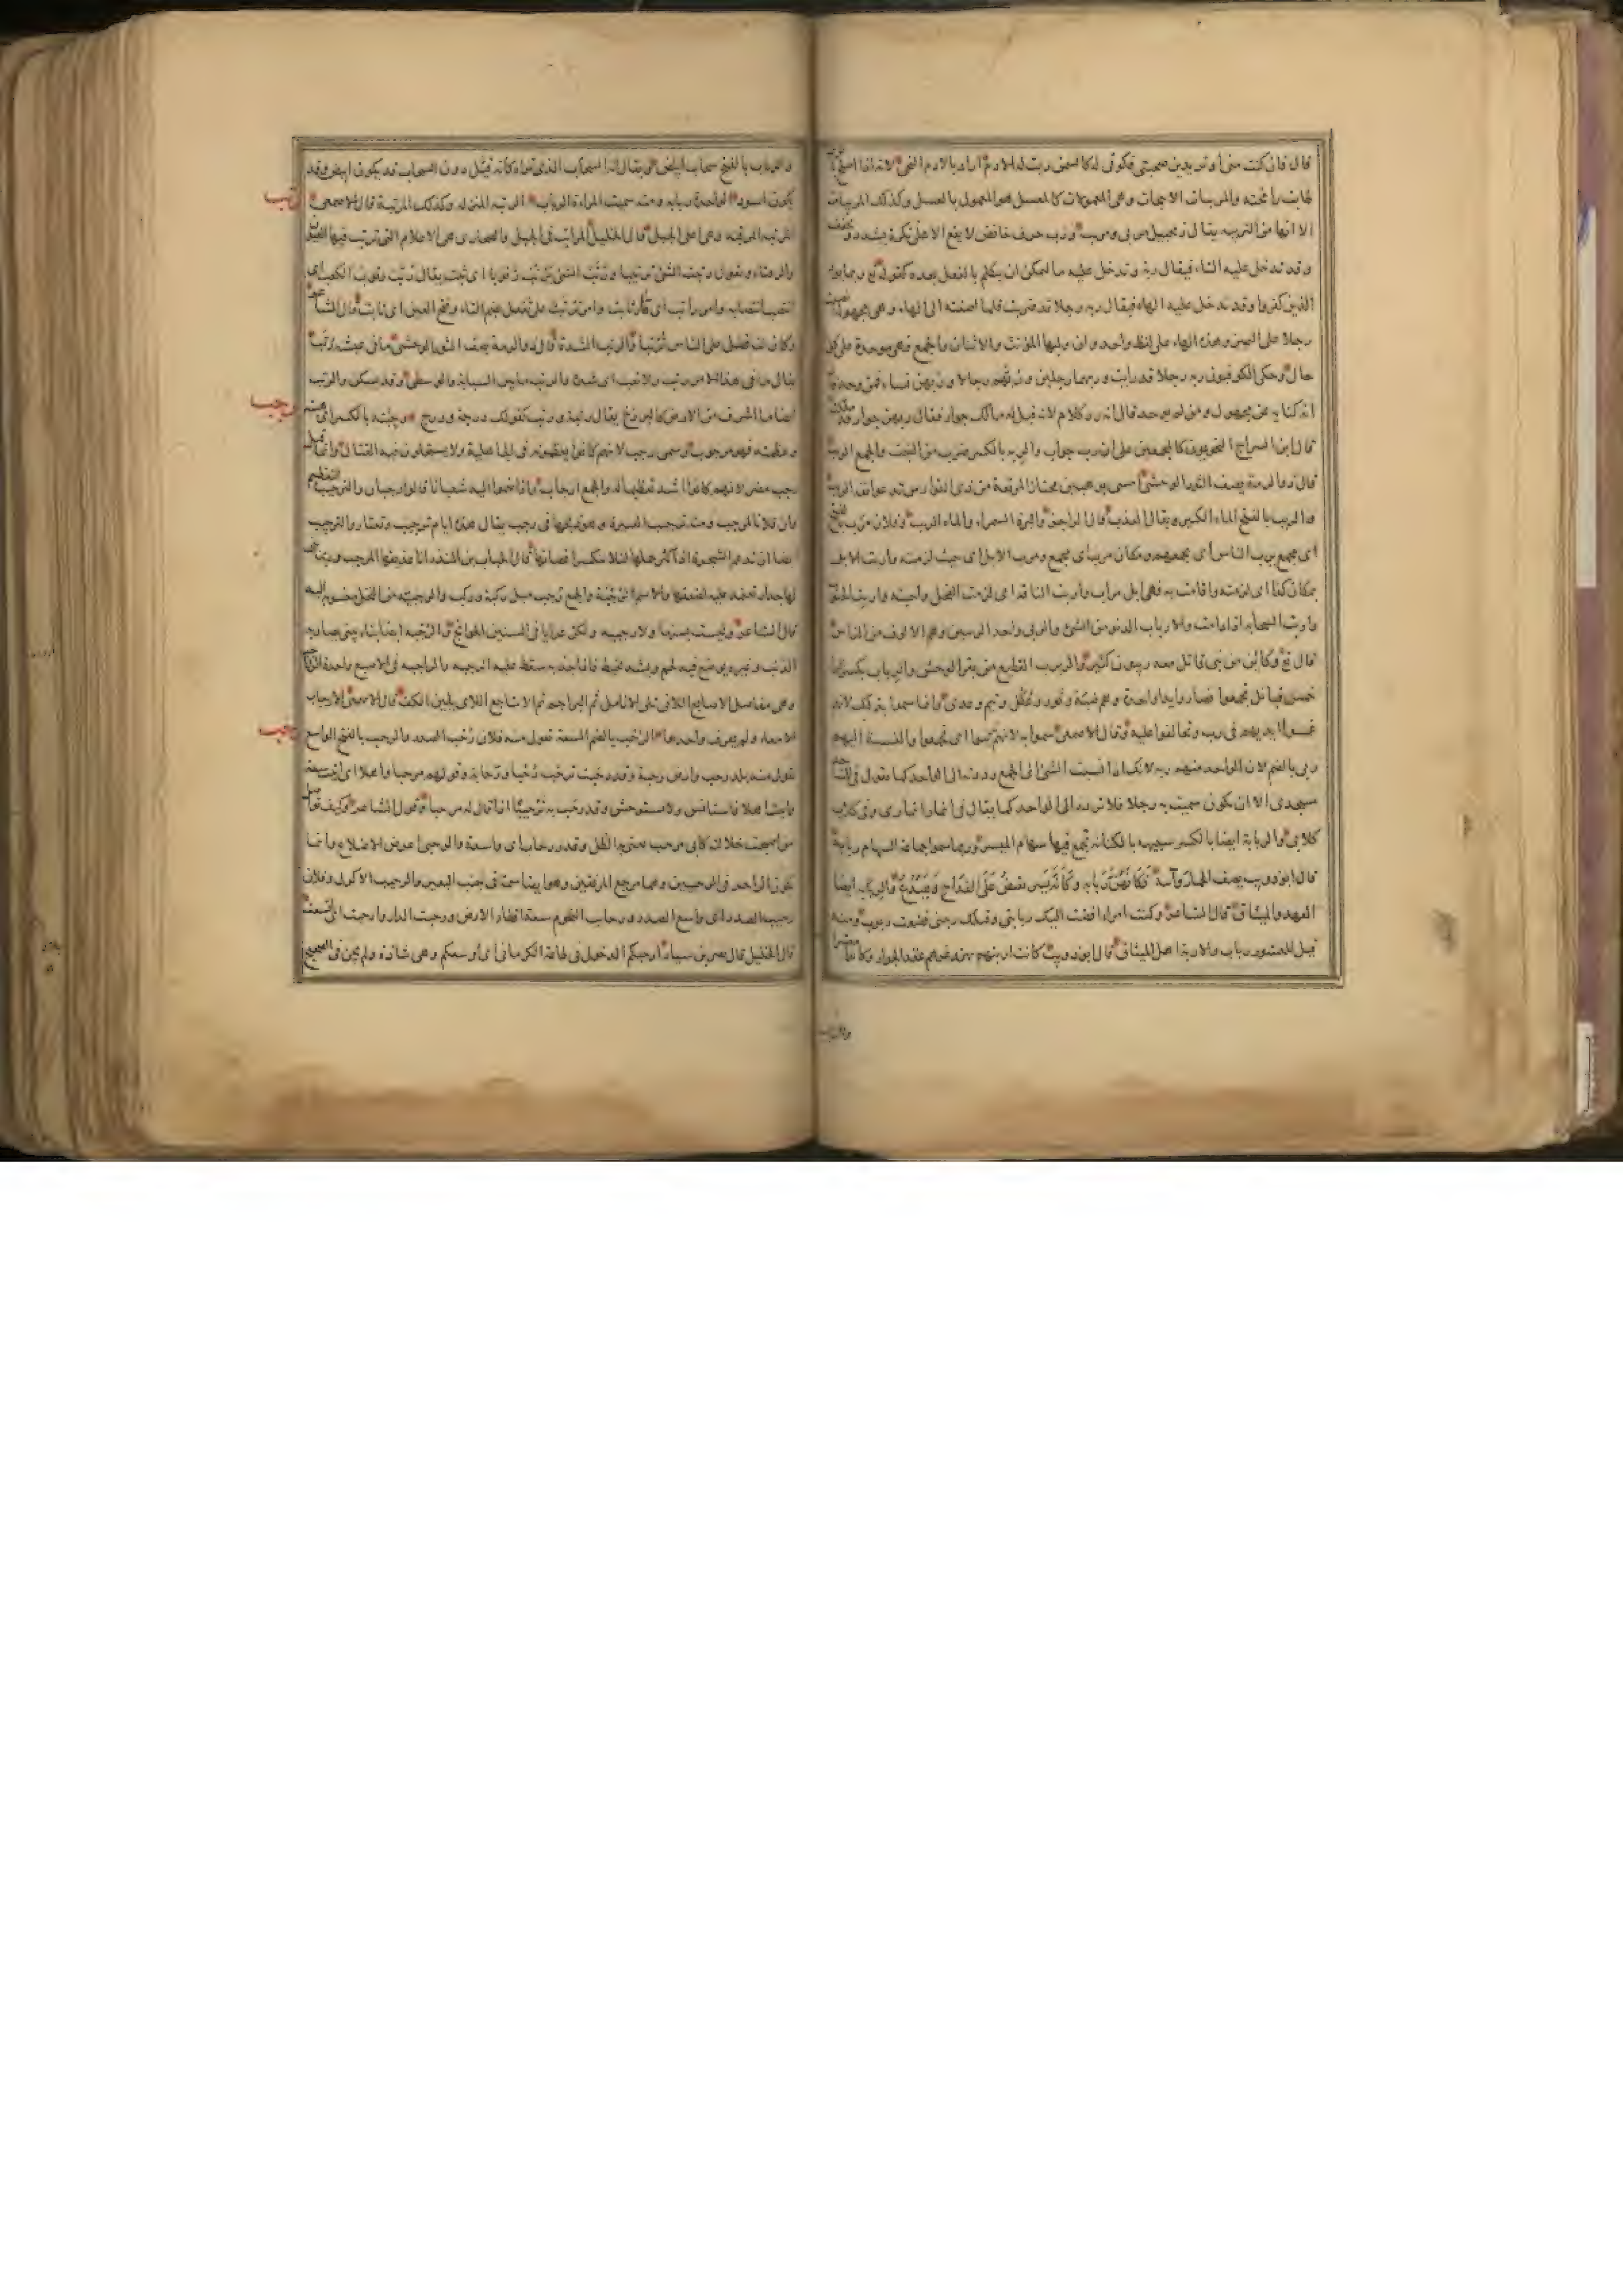 قال فان كنت منى او تريدين صحبتى فكونى له كالسمن ربت له الادم اراد بالادم النحى لانه اذا اصلح
طابت رائحته والمربيات الانبجات وهى المعمولات بالرب كالمعسل هو المعمول بالعسل وكذلك المربيات
الا انها من التربية يقال زنجبيل مربى ومربب ورب حرف خافض لا يقع الا على نكرة يشدد ويخفف
وقد تدخل عليه التاء فيقال ربة وتدخل عليه ما ليمكن ان يتكلم بالفعل بعده كقوله تع ربما يود
الذين كفروا وقد تدخل عليه الهاء فيقال ربه رجلا قد ضربت فلما اضفته الى الهاء وهى مجهولة نصبت
رجلا على التمييز وهذه الهاء على لفظ واحد وان وليها المؤنث والاثنان والجمع فهى موحدة على كل
حال وحكى الكوفيون ربه رجلا قد رايت وربهما رجلين وربهم رجالا وربهن نساء فمن وحد قال
انه كناية عن مجهول ومن لم يوحد قال انه رد كلام كانه قيل له مالك جوار فقال ربهن جوار قد ملكت
قال ابن السراج النحويون كالمجمعين على ان رب جواب والربة بالكسر ضرب من النبت والجمع الربب
قال ذوالرمة يصف الثور الوحشى امسى بوهبين مجتازا لمرتعه من ذى الفوارس تدعو انفه الربب
والربب بالفتح الماء الكثير ويقال العذب قال الراجز والبرة السمراء والماء الربب وفلان مرب بالفتح
اى مجمع يرب الناس اى يجمعهم ومكان مرب اى مجمع ومرب الابل اى حيث لزمته واربت الابل
بمكان كذا اى لزمته واقامت به فهى ابل مراب واربت الناقة اى لزمت الفحل واحبته واربت الجنوب
واربت السحابة اذا دامت والارباب الدنو من الشئ والربى واحد الربيين وهم الالوف من الناس
قال تع وكاين من نبى قاتل معه ربيون كثير والربرب القطيع من بقر الوحش والرباب بكسر الراء
خمس قبائل تجمعوا فصاروا يدا واحدة وهم ضبة وثور وعكل وتيم وعدى وانما سموا بذلك لانهم
غمسوا ايديهم فى رب وتحالفوا عليه وقال الاصمعى سموا به لانهم ترببوا اى تجمعوا والنسبة اليهم
ربى بالضم لان الواحد منهم ربة لانك اذا نسبت الشئ الى الجمع رددته الى الواحد كما تقول فى المساجد
مسجدى الا ان تكون سميت به رجلا فلا ترده الى الواحد كما يقال فى انمار انمارى وفى كلاب
كلابى والربابة ايضا بالكسر شبيهة بالكنانة تجمع فيها سهام الميسر وربما سموا جماعة السهام ربابة
قال ابوذويب يصف الحمار وآتنه فكانهن ربابة وكانه يسر يفيض على القداح ويصدع والربابة ايضا
العهد والميثاق قال الشاعر وكنت امرءا افضت اليك ربابتى وقبلك ربتنى فضعت ربوب ومنه
قيل للعشور رباب والاربة اهل الميثاق قال ابوذويب كانت اربتهم بهز وغرهم عقد الجوار وكانوا معشرا
والرباب بالفتح سحاب ابيض ويقال انه السحاب الذى تراه كانه دون السحاب قد يكون ابيض وقد
يكون اسود الواحدة ربابة ومنه سميت المراة الرباب الرتبة المنزلة وكذلك المرتبة قال الاصمعى
رتب
المرتبة المرقبة وهى اعلى الجبل قال الخليل المراتب فى الجبل والصحارى هى الاعلام التى ترتب فيها العيون
والرقباء وتقول رتبت الشئ ترتيبا ورتب الشئ يرتب رتوبا اى ثبت يقال رتب رتوب الكعب اى
انتصب انتصابه وامر راتب اى دار ثابت وامر ترتب على تفعل بضم التاء وفتح العين اى ثابت قال الشاعر
وكان لنا فضل على الناس ترتبا والرتب الشدة قال ذوالرمة يصف الثور الوحشى ما فى عيشه رتب
يقال ما فى هذا الامر رتب ولا عتب اى شدة والرتب ما بين السبابة والوسطى وقد يسكن والرتب
ايضا ما اشرف من الارض كالبرزخ يقال رتبة ورتب كقولك درجة ودرج رجبته بالكسر اى هبته
رجب
وعظمته فهو مرجوب وسمى رجب لانهم كانوا يعظمونه فى الجاهلية ولا يستحلون فيه القتال وانما قيل
رجب مضر لانهم كانوا اشد تعظيما له والجمع ارجاب واذا ضموا اليه شعبان قالوا رجبان والترجيب التعظيم
وان فلانا لمرجب ومنه ترجيب العتيرة وهو ذبحها فى رجب يقال هذه ايام ترجيب وتعتار والترجيب
ايضا ان تدعم الشجرة اذا كثر حملها لئلا تنكسر اغصانها قال الحباب بن المنذر انا عذيقها المرجب وربما بنى
لها جدار تعتمد عليه لضعفها والاسم الرجبة والجمع رجب مثل ركبة وركب والرجبية من النخل منسوبة اليه
قال الشاعر وليست بسنهاء ولا رجبية ولكن عرايا فى السنين الجوائح والرجبة ايضا بناء يبنى يصاد به
الذئب وغيره يوضع فيه لحم ويشد بخيط فاذا جذبه سقط عليه الرجبة والراجبة فى الاصبع واحدة الرواجب
وهى مفاصل الاصابع اللاتى تلى الانامل ثم البراجم ثم الاشاجع اللاتى يلين الكف قال الاصمعى الارجاب
الامعاء ولم يعرف واحدها الرحب بالضم السعة تقول منه فلان رحب الصدر والرحب بالفتح الواسع
رحب
تقول منه بلد رحب وارض رحبة وقد رحبت ترحب رحبا ورحابة وقولهم مرحبا واهلا اى اتيت سعة
واتيت اهلا فاستانس ولا تستوحش وقد رحب به ترحيبا اذا قال له مرحبا وقول الشاعر وكيف تواصل
من اصبحت خلالته كابى مرحب يعنى به الظل وقدر رحاب اى واسعة والرحبى اعرض الاضلاع وانما
يكون الناحز فى الرحبيين وهما مرجع المرفقين وهو ايضا سمة فى جنب البعير والرحيب الاكول وفلان
رحيب الصدر اى واسع الصدر ورحاب التخوم سعة اقطار الارض ورحبت الدار وارحبت اى اتسعت
قال الخليل قال نصر بن سيار ارحبكم الدخول فى طاعة الكرمانى اى اوسعكم وهى شاذة ولم يجئ فى الصحيح